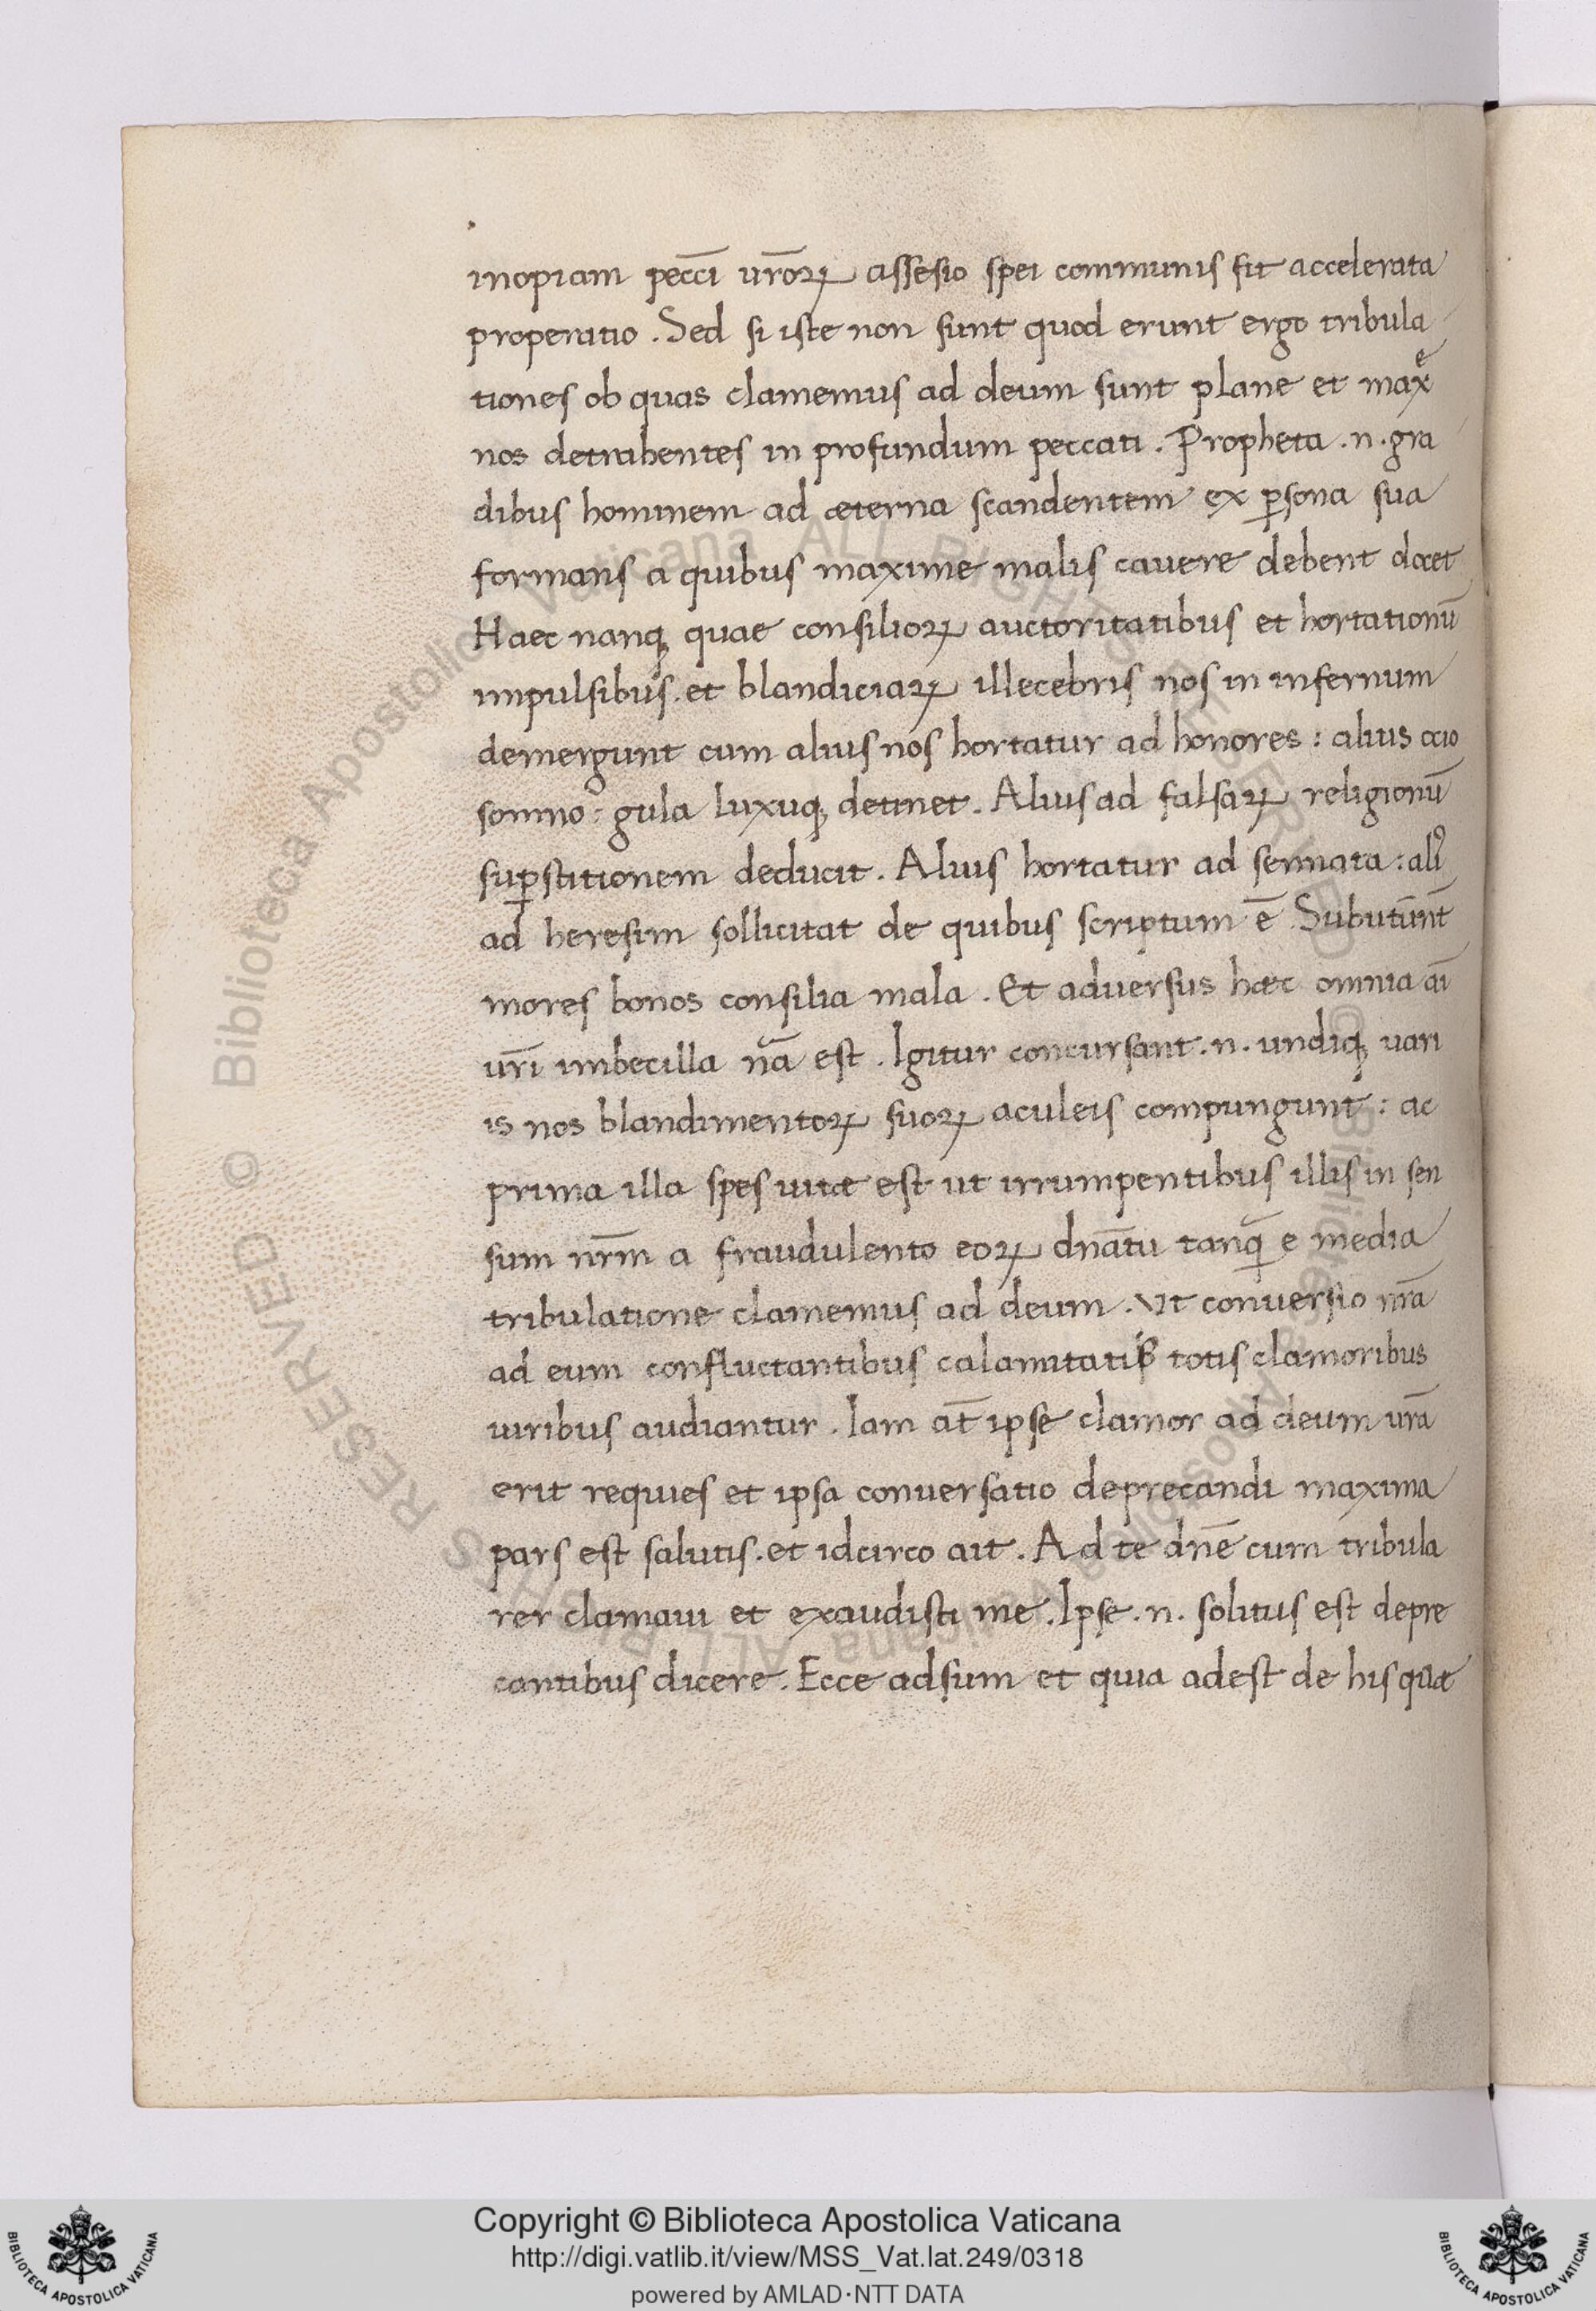 inopiam pecc̄i ur̄oꝝ assesio spei communis fit accelerata
properatio . Sed si iste non sunt quod erunt ergo tribula
tiones ob quas clamemus ad deum sunt plane et maxᵉ
nos detrahentes in profundum peccati . Propheta .n. gra
dibus hominem ad æterna scandentem ex ꝑsona sua
formans a quibus maxime malis cauere debent docet
Haec nanqꝫ quae consilioꝝ auctoritatibus et hortationū
impulsibus . et blandiciaꝝ illecebris nos in infernum
demergunt cum alius nos hortatur ad honores : alius ocio
somno : gula luxuqꝫ detinet . Alius ad falsaꝝ religionū
suꝑstitionem deducit . Alius hortatur ad sennata : aliꝰ
ad heresim sollicitat de quibus scriptum ē . Subutūnt
mores bonos consilia mala . Et aduersus hæc omnia aī
ur̄i imbecilla nā est . Igitur concursant .n. undiqꝫ uari
is nos blandimentoꝝ suoꝝ aculeis compungunt : ac
prima illa spes uitæ est ut irrumpentibus illis in sen
sum nr̄m a fraudulento eoꝝ dnātu tanq̃ e media
tribulatione clamemus ad deum . Vt conuersio nr̄a
ad eum confluctantibus calamitatis totis clamoribus
uiribus audiantur . Iam at̄ ipse clamor ad deum ur̄a
erit requies et ipsa conuersatio deprecandi maxima
pars est salutis . et idcirco ait . Ad te dn̄e cum tribula
rer clamaui et exaudisti me . Ipse .n. solitus est depre
cantibus dicere . Ecce adsum et quia adest de his quæ
© Biblioteca Apostolica Vaticana ALL RIGHTS RESERVED © Biblioteca Apostolica Vaticana ALL RIGHTS RESERVED
Copyright © Biblioteca Apostolica Vaticana
http://digi.vatlib.it/view/MSS_Vat.lat.249/0318
powered by AMLAD·NTT DATA
BIBLIOTECA APOSTOLICA VATICANA
BIBLIOTECA APOSTOLICA VATICANA